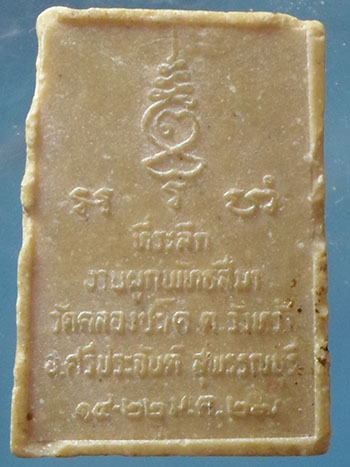 ที่ระลึก
งานผูกพัทธสีมา
วัดคลอง ต.วังหว้า
อ.ศรีประจันต์ สุพรรณบุรี
๑๔-๒๒ ม.ค.